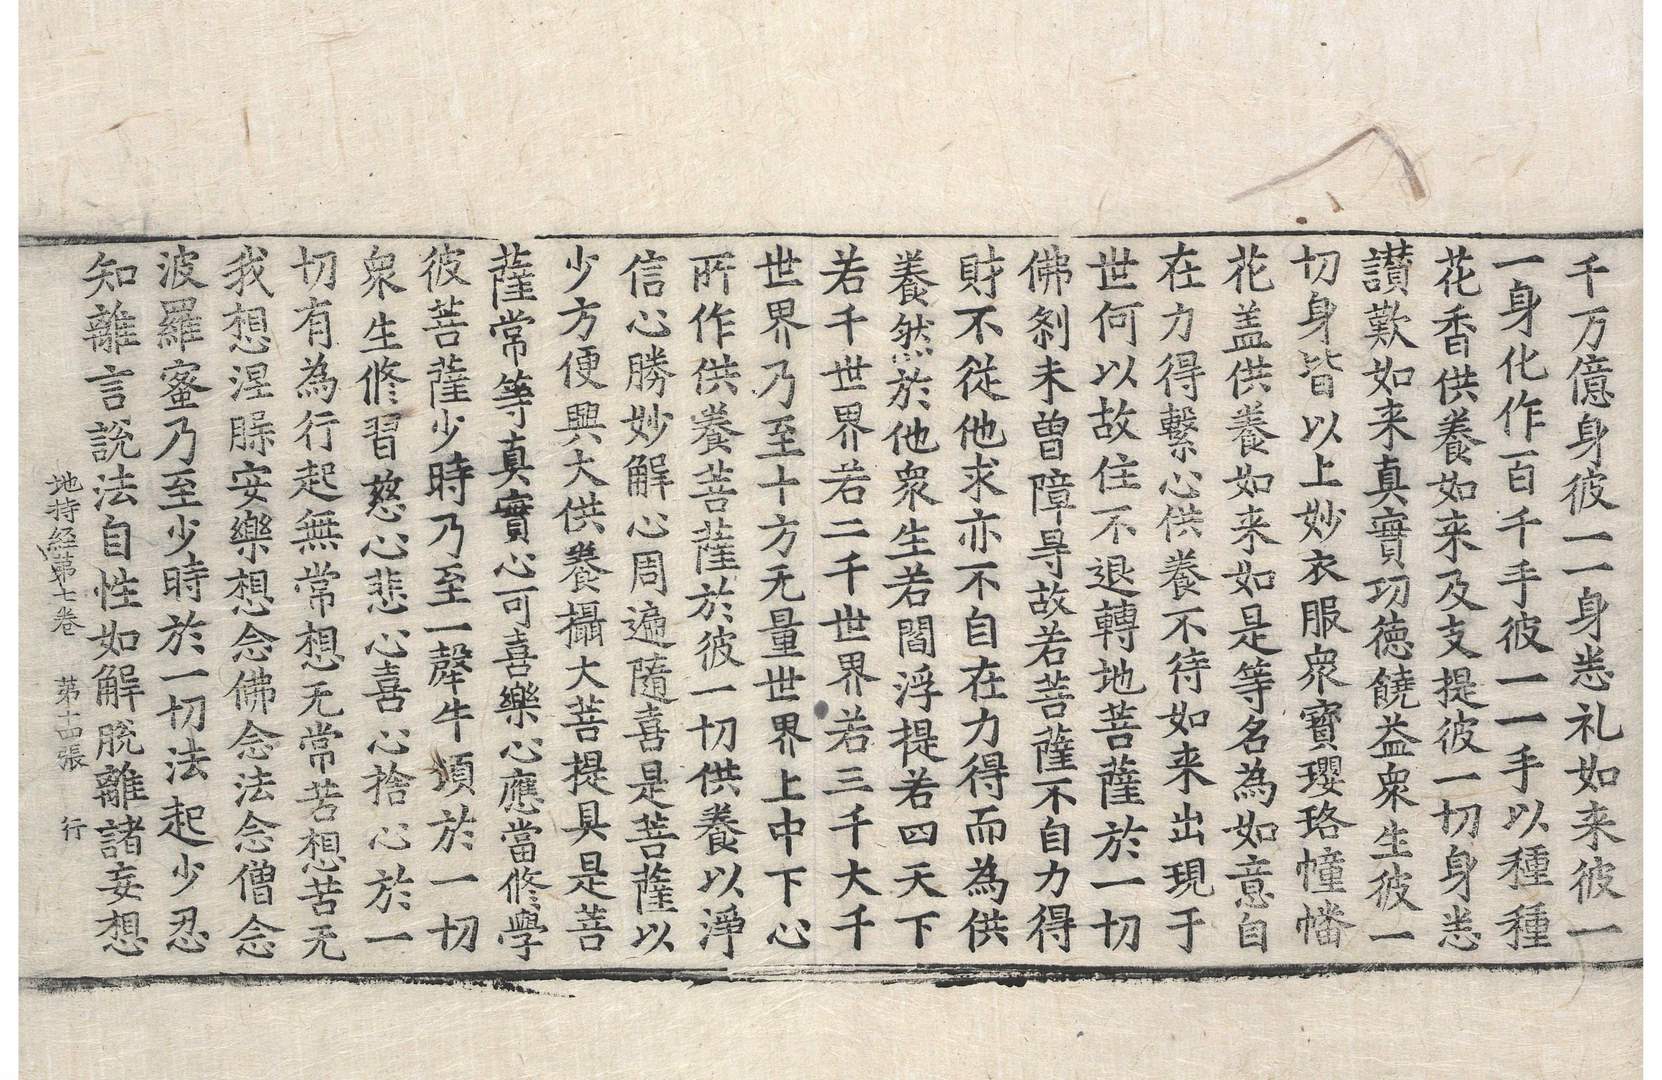 千万億身彼一一身悉礼如来彼一
一身化作百千手彼一一手以種種
花香供養如来及支提彼一切身悉
讃歎如来真實功徳饒益衆生彼一
切身皆以上妙衣服衆寶瓔珞幢幡
花盖供養如来如是等名為如意自
在力得繫心供養不待如来出現于
世何以故住不退轉地菩薩於一切
佛刹未曽障㝵故若菩薩不自力得
財不従他求亦不自在力得而為供
養然於他衆生若閻浮提若四天下
若千世界若二千世界若三千大千
世界乃至十方无量世界上中下心
所作供養菩薩於彼一切供養以淨
信心勝妙解心周遍隨喜是菩薩以
少方便興大供養攝大菩提具是菩
薩常等真實心可喜樂心應當修學
彼菩薩少時乃至一㹌牛頃於一切
衆生修習慈心悲心喜心捨心於一
切有為行起無常想无常苦想苦无
我想涅槃安樂想念佛念法念僧念
波羅蜜乃至少時於一切法起少忍
知離言說法自性如解脫離諸妄想
地持経第七巻 第十四張 行